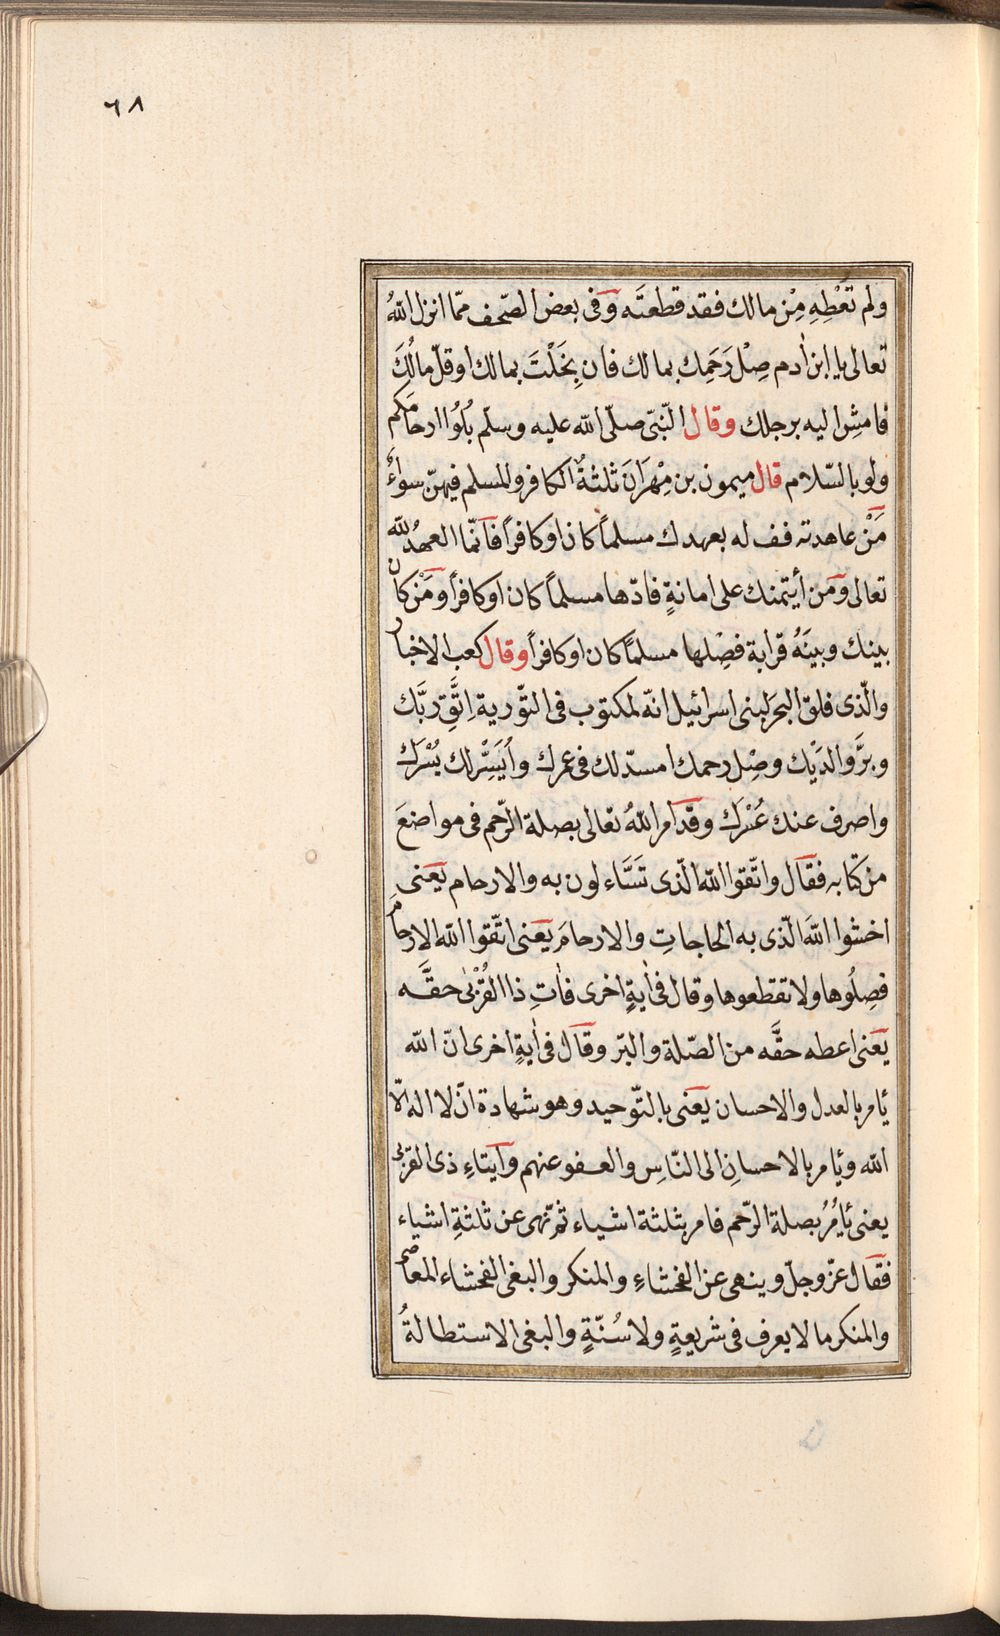 ٦٨
ولم تُعْطِهِ مِنْ مالك فقد قطعتَه وَفى بعض الصّحف ممّا انزل اللّٰهُ
تعالى يا ابن اٰدم صِلْ رَحِمَك بمالك فان بَخَلْتَ بمالك او قلّ مالُكَ
فامشِ اليه برجلك وقال النّبىّ صلّى اللّٰه عليه وسلّم بُلُوا ارحامَكم
ولو بالسّلام قال ميمون بن مِهْرَانَ ثلثةٌ الكافر والمسلم فيهنّ سواءٌ
مَنْ عاهدته فف له بعهدك مسلماً كان او كافراً فانّما العهدُ للّٰه
تعالى ومَن أيتمنك على امانةٍ فادّها مسلماً كان او كافراً ومَنْ كان
بينك وبينَهُ قرابة فصِلها مسلمًا كان او كافراً وقال كعب الاخبار
والّذى فلق البحرَ لبنى اسرائيل انّه لمكتوب فى التّورية اِتَّقِ ربَّك
وبرَّ والدَيْك وصِل رحمك امدّ لك فى عمرك واُيَسِّرْ لك يُسْرَك
واصرف عنك عُسْرَك وقد امر اللّٰهُ تعالى بصلة الرّحم فى مواضعَ
من كتابه فقال واتّقوا اللّٰه الّذى تَسَّاءلون به والارحام يعنى
اخشوا اللّٰهَ الّذى به الحاجاتِ والارحامَ يعنى اتّقوا اللّٰه الارحامَ
فصِلُوها ولا تقطعوها وقال فى اٰيةٍ اخرى فاٰتِ ذا القُرْبٰى حقَّه
يعنى اعطه حقَّه من الصّلة والبّر وقال فى اٰيةٍ اخرى انّ اللّٰه
يأمر بالعدل والاحسان يعنى بالتّوحيد وهو شهادة ان لا اله الّا
اللّٰه ويأمر بالاحسانِ الى النّاسِ والعفو عنهم وايتاءِ ذى القربى
يعنى يأمُرُ بصلة الرّحم فامر بثلثة اشياء ثم نهى عن ثلثةِ اشياء
فقال عزّ وجلّ وينهى عن الفحشاءِ والمنكر والبغى الفحشاء المعاصى
والمنكر ما لا يعرف فى شريعةٍ ولا سُنّةٍ والبغى الاستطالةُ